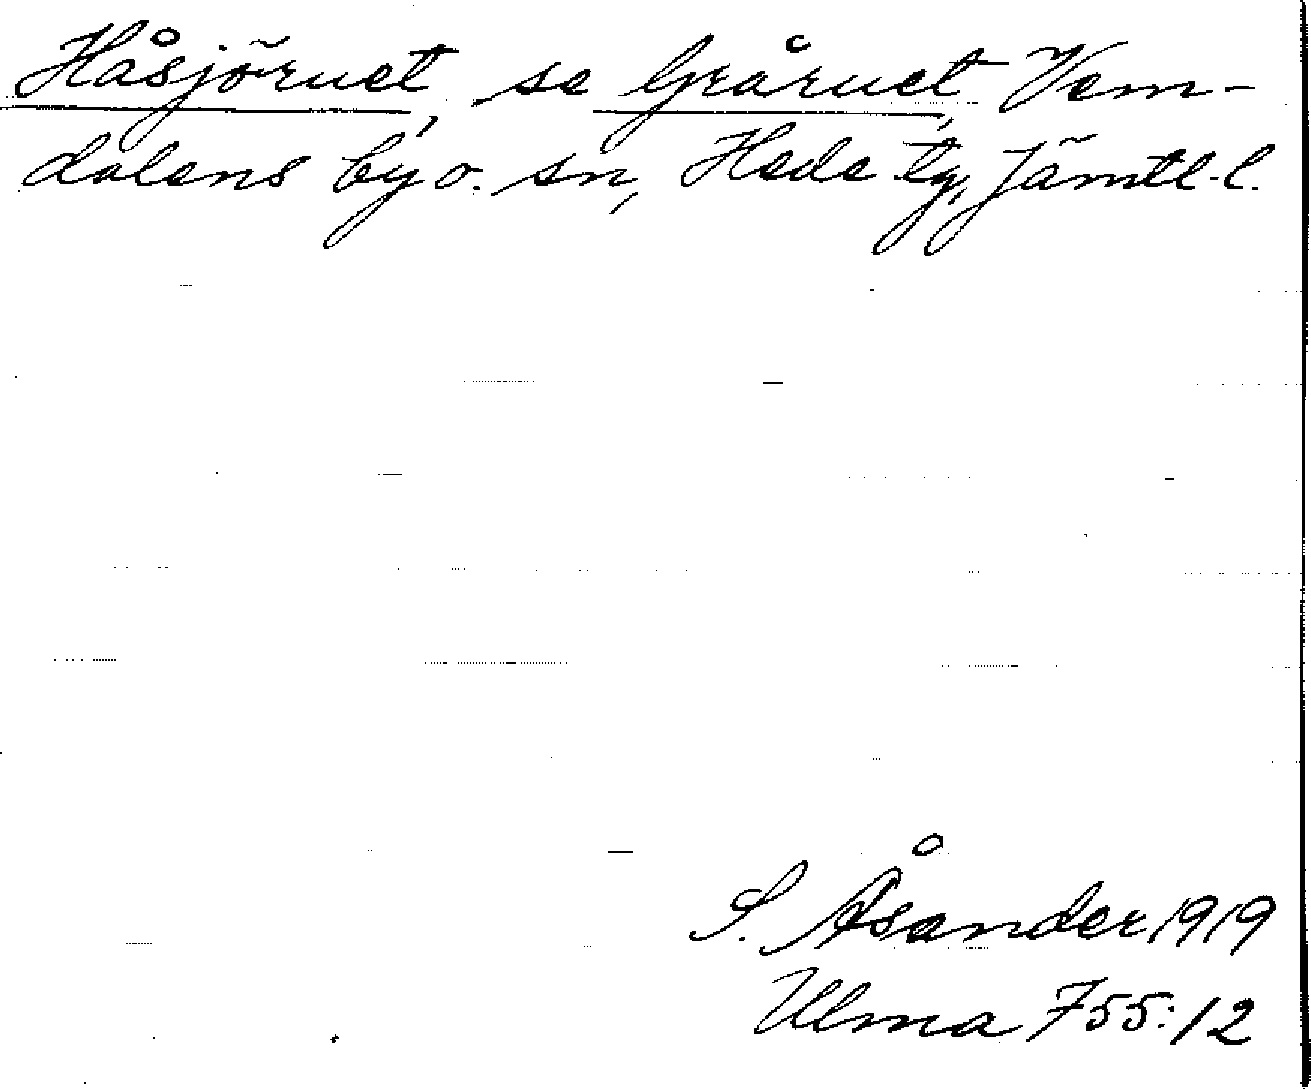 Håsjöruet, se Gråruet, Vem-
dalens by o. sn, Hede tg, Jämtl. l.
S. Åsander 1919
Ulma 755:12